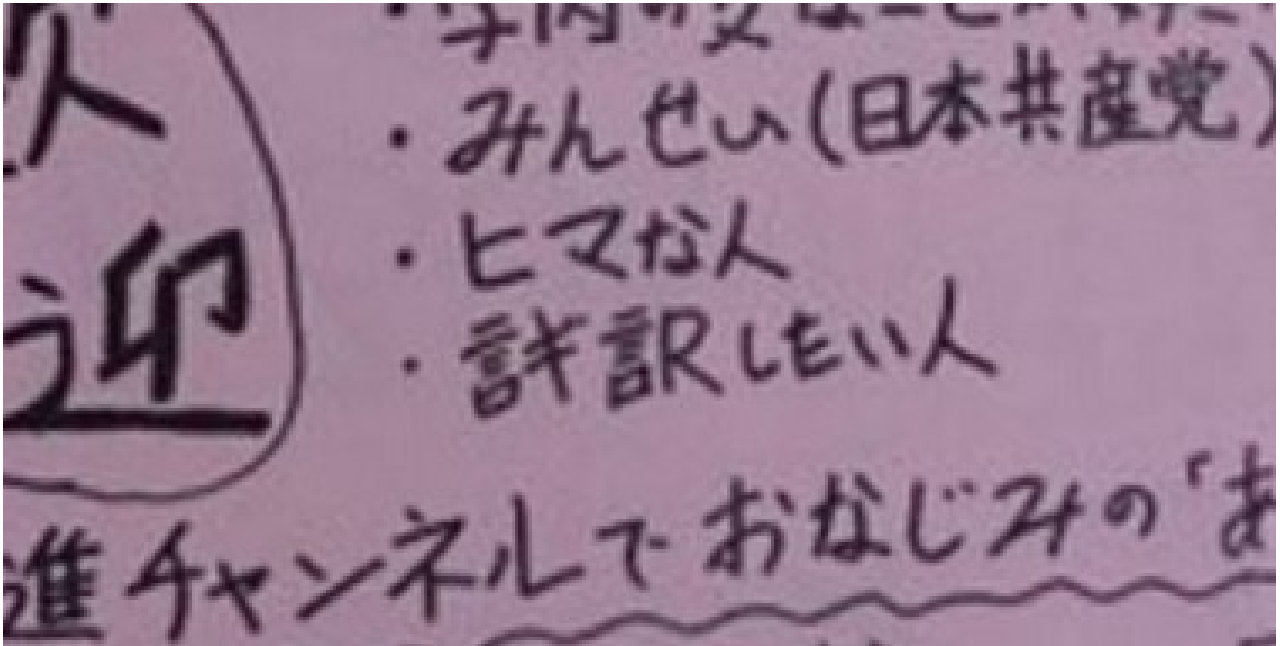 ・みんせい(日本共産党)
・ヒマな人
・議訳したい人
迎
進チャンネルでおなじみの「あ